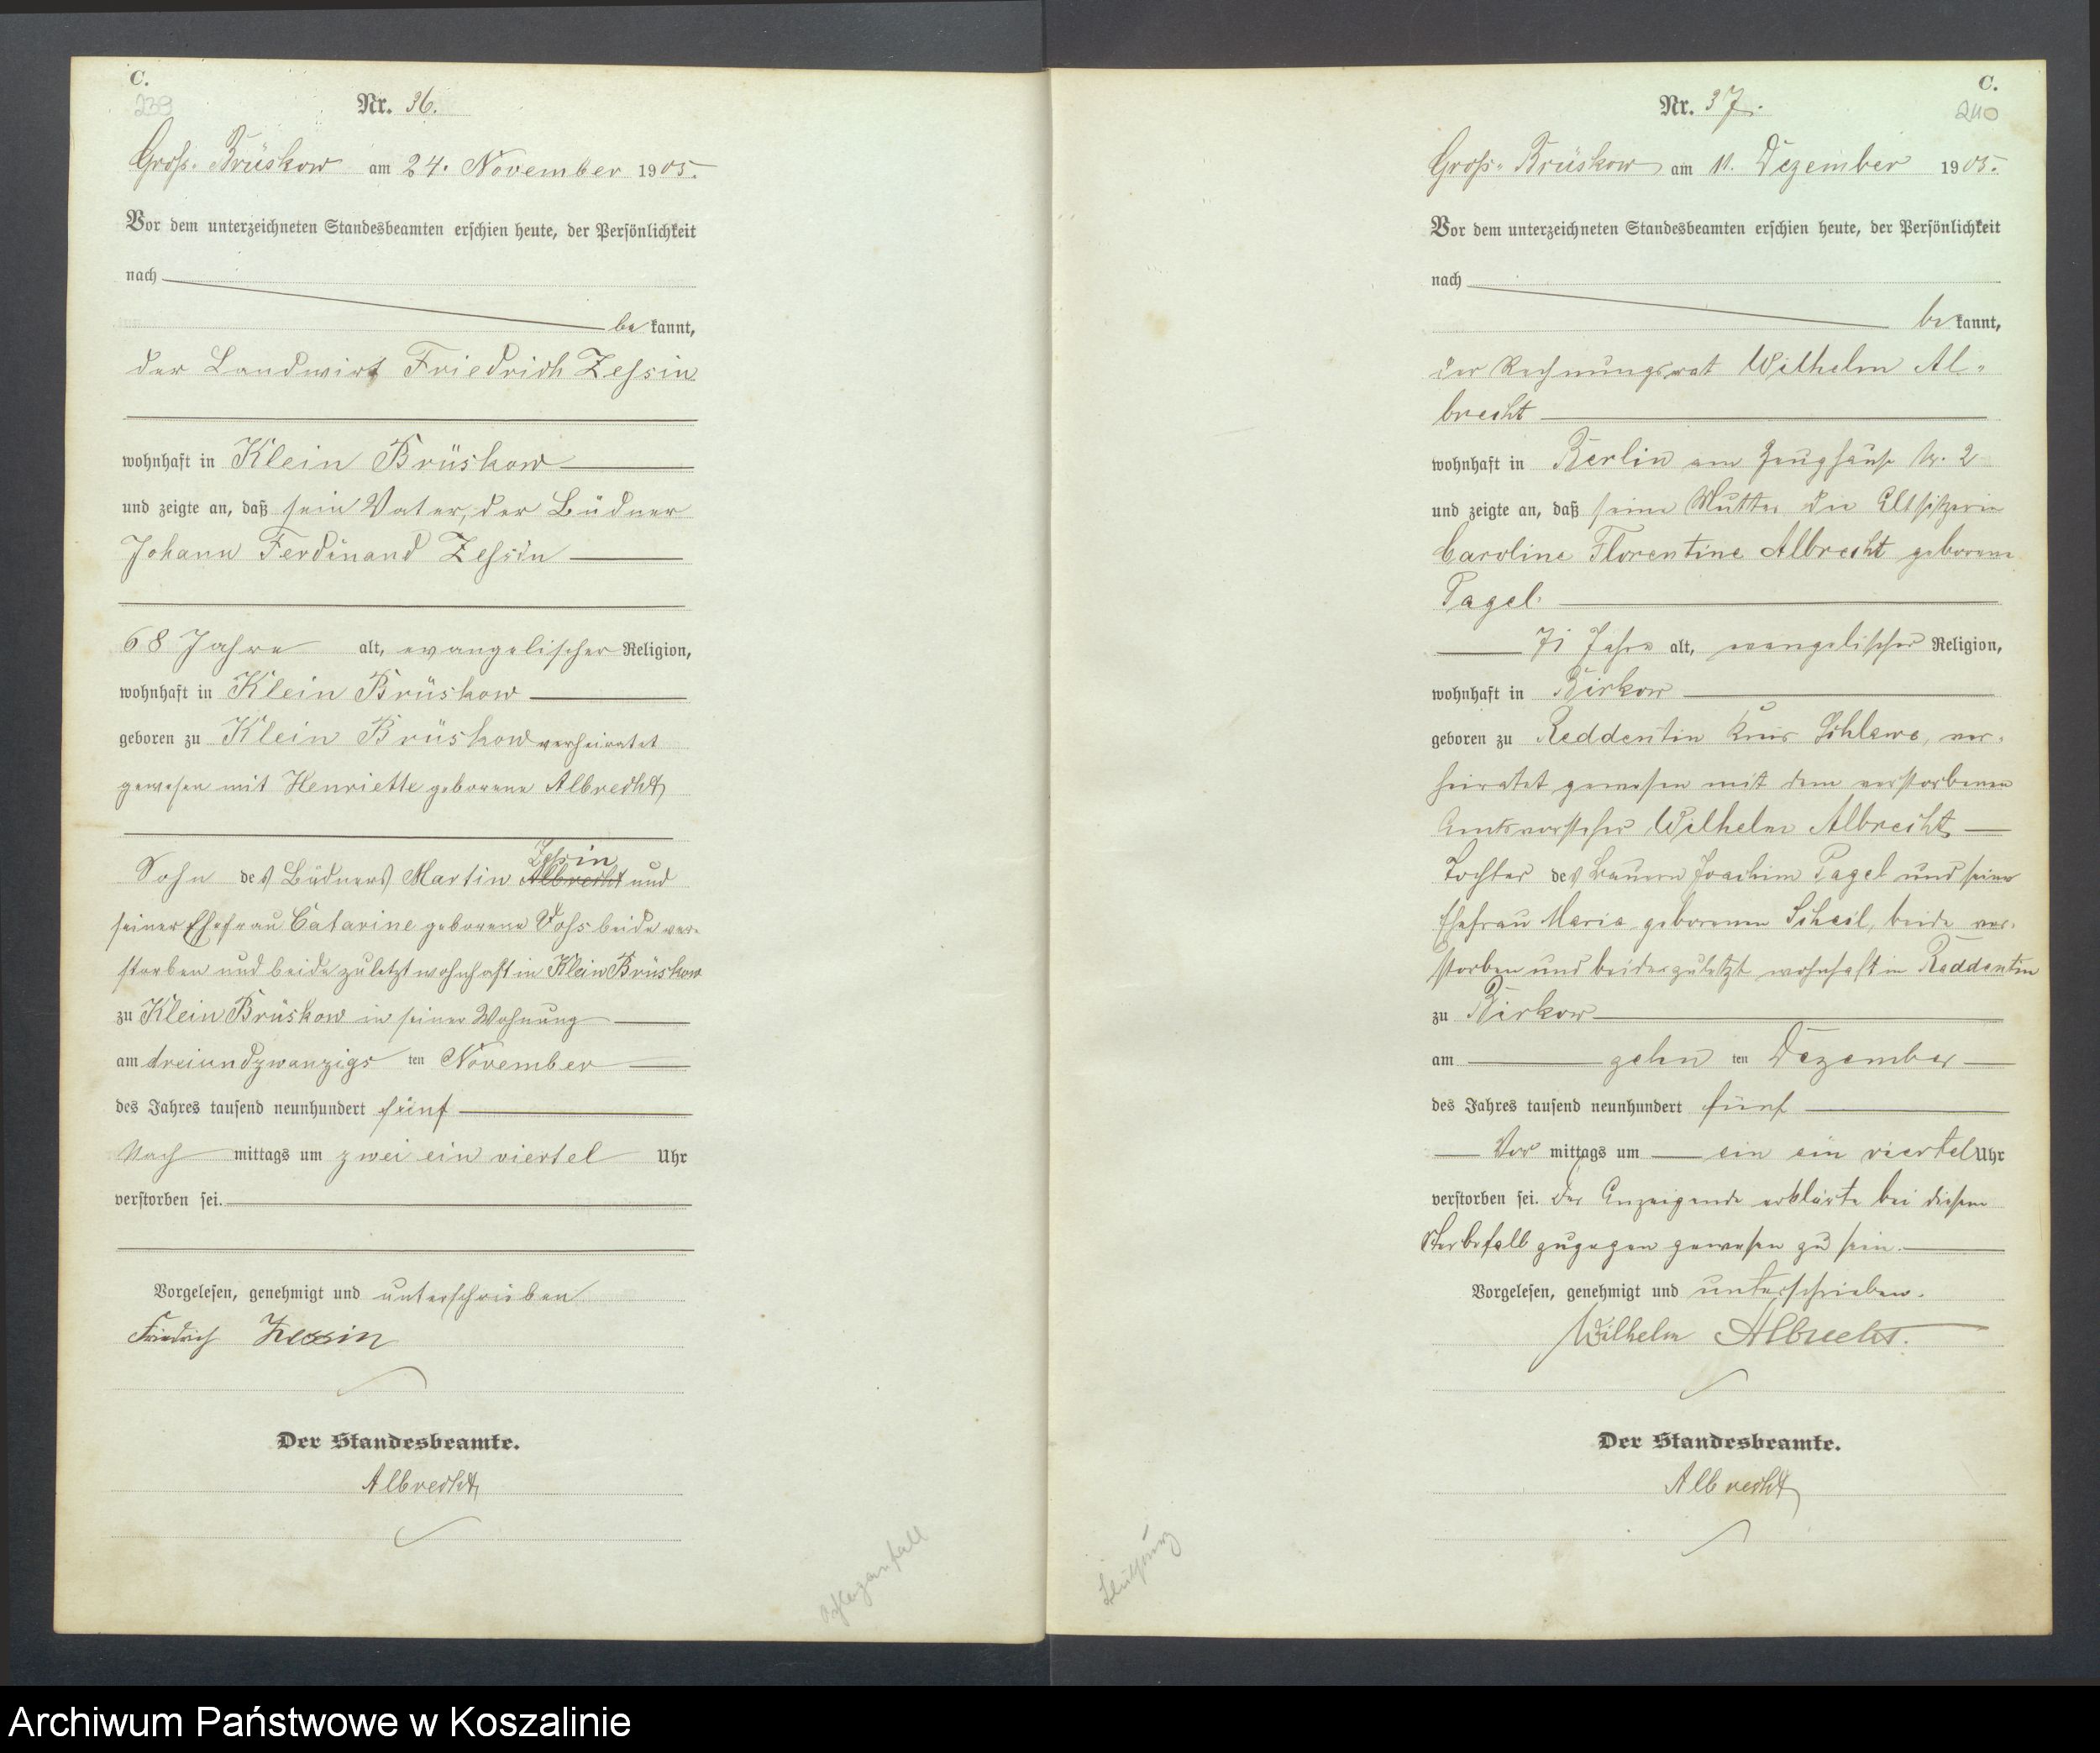 C.
239
Nr. 36.
Groß-Brüskow am 24. November 1905.
Vor dem unterzeichneten Standesbeamten erschien heute, der Persönlichkeit
nach
be kannt,
der Landwirt Friedrich Zessin
wohnhaft in Klein Brüskow
und zeigte an, daß sein Vater, der Büdner
Johann Ferdinand Zessin
68 Jahre alt, evangelischer Religion,
wohnhaft in Klein Brüskow
geboren zu Klein Brüskow verheiratet
gewesen mit Henriette geborene Albrecht
Zessin
Sohn des Büdners Martin Albrecht und
seiner Ehefrau Catarine geborene Voss beide ver-
storben und beide zuletzt wohnhaft in Klein Brüskow
zu Klein Brüskow in seiner Wohnung
am dreiundzwanzigs ten November
des Jahres tausend neunhundert fünf
Nach mittags um zwei ein viertel Uhr
verstorben sei.
Vorgelesen, genehmigt und unterschrieben
Friedrich Zessin
Der Standesbeamte.
Albrecht
C.
240
Nr. 37.
Groß-Brüskow am 11. Dezember 1905.
Vor dem unterzeichneten Standesbeamten erschien heute, der Persönlichkeit
nach
be kannt,
der Rechnungsrat Wilhelm Al-
brecht
wohnhaft in Berlin am Zeughause Nr. 2
und zeigte an, daß seine Mutter die Altsitzerin
Caroline Florentine Albrecht geborene
Pagel.
71 Jahre alt, evangelischer Religion,
wohnhaft in Birkow
geboren zu Reddentin Kreis Schlawe, ver-
heiratet gewesen mit dem verstorbenen
Amtsvorsteher Wilhelm Albrecht
Tochter des Bauern Joachim Pagel und seiner
Ehefrau Maria geborenen Scheil, beide ver-
storben und beide zuletzt wohnhaft in Reddentin
zu Birkow
am zehn ten Dezember
des Jahres tausend neunhundert fünf
Vor mittags um ein ein viertel Uhr
verstorben sei. Der Anzeigende erklärte bei diesem
Sterbefall zugegen gewesen zu sein.
Vorgelesen, genehmigt und unterschrieben.
Wilhelm Albrecht.
Der Standesbeamte.
Albrecht
Archiwum Państwowe w Koszalinie